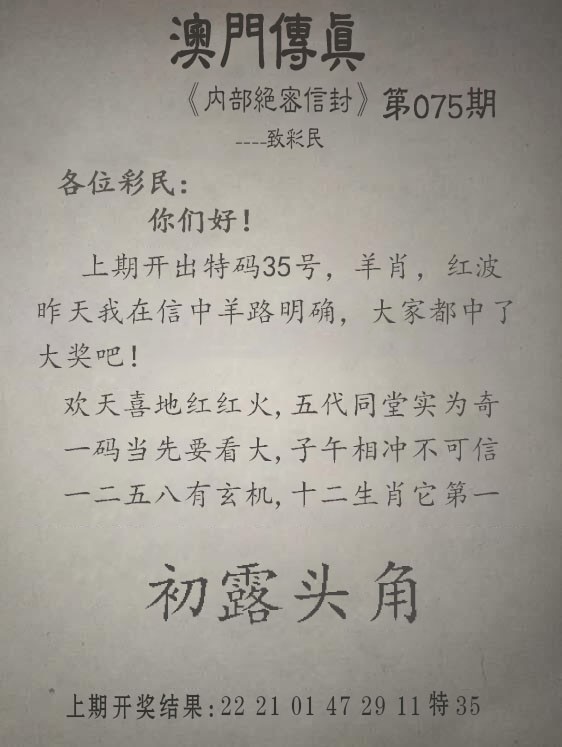 澳門傳真
《内部絕密信封》第075期
----致彩民
各位彩民:
你们好!
上期开出特码35号，羊肖，红波
昨天我在信中羊路明确，大家都中了
大奖吧!
欢天喜地红红火,五代同堂实为奇
一码当先要看大,子午相冲不可信
一二五八有玄机,十二生肖它第一
初露头角
上期开奖结果:22 21 01 47 29 11特35